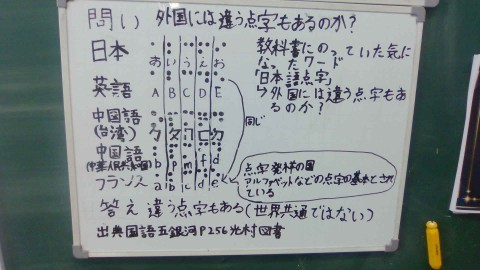 問い 外国には違う点字もあるのか?
日本 あ い う え お
英語 A B C D E
中国語(台湾) ㄅ ㄆ ㄇ ㄈ ㄉ
中国語(中華人民共和国) b p m f d
フランス a b c d e
同じ
教科書にのっていた気に
なったワード
「日本語点字」
↳外国には違う点字もあ
るのか?
点字発祥の国
アルファベットなどの点字の基本とされ
ている
答え 違う点字もある(世界共通ではない)
出典国語五銀河P256光村図書